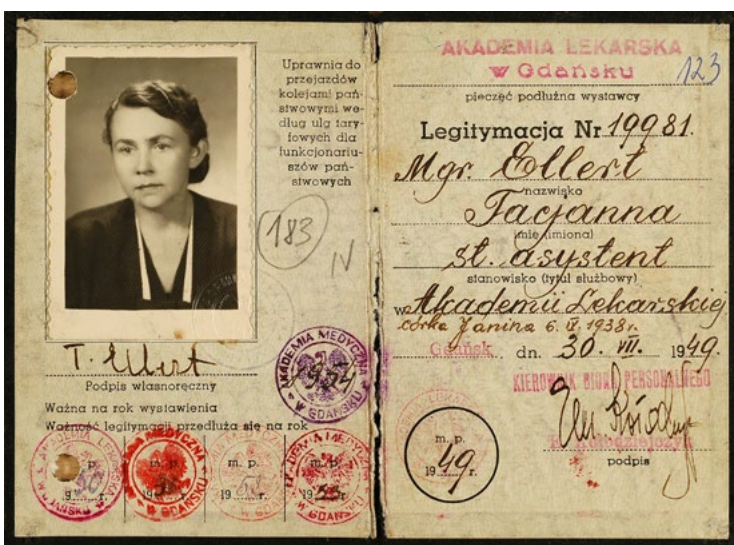 Uprawnia do
przejazdów
kolejami pań-
stwowymi we-
dług ulg tary-
fowych dla
funkcjonariu-
szów pań-
stwowych
183
N
T. Ellert
Podpis własnoręczny
Ważna na rok wystawienia
Ważność legitymacji przedłuża się na rok
AKADEMIA MEDYCZNA
W GDAŃSKU
1954
m. p.
19 50 r.
m. p.
19 r.
m. p.
19 r.
m. p.
19 r.
AKADEMIA LEKARSKA
w Gdańsku
123
pieczęć podłużna wystawcy
Legitymacja Nr 19981.
Mgr. Ellert
nazwisko
Tacjanna
imię (imiona)
st. asystent
stanowisko (tytuł służbowy)
w Akademii Lekarskiej
córka Janina 6. IX. 1938r.
Gdańsk, dn. 30. VII. 1949.
KIEROWNIK BIURA PERSONALNEGO
m. p.
19 49 r.
podpis